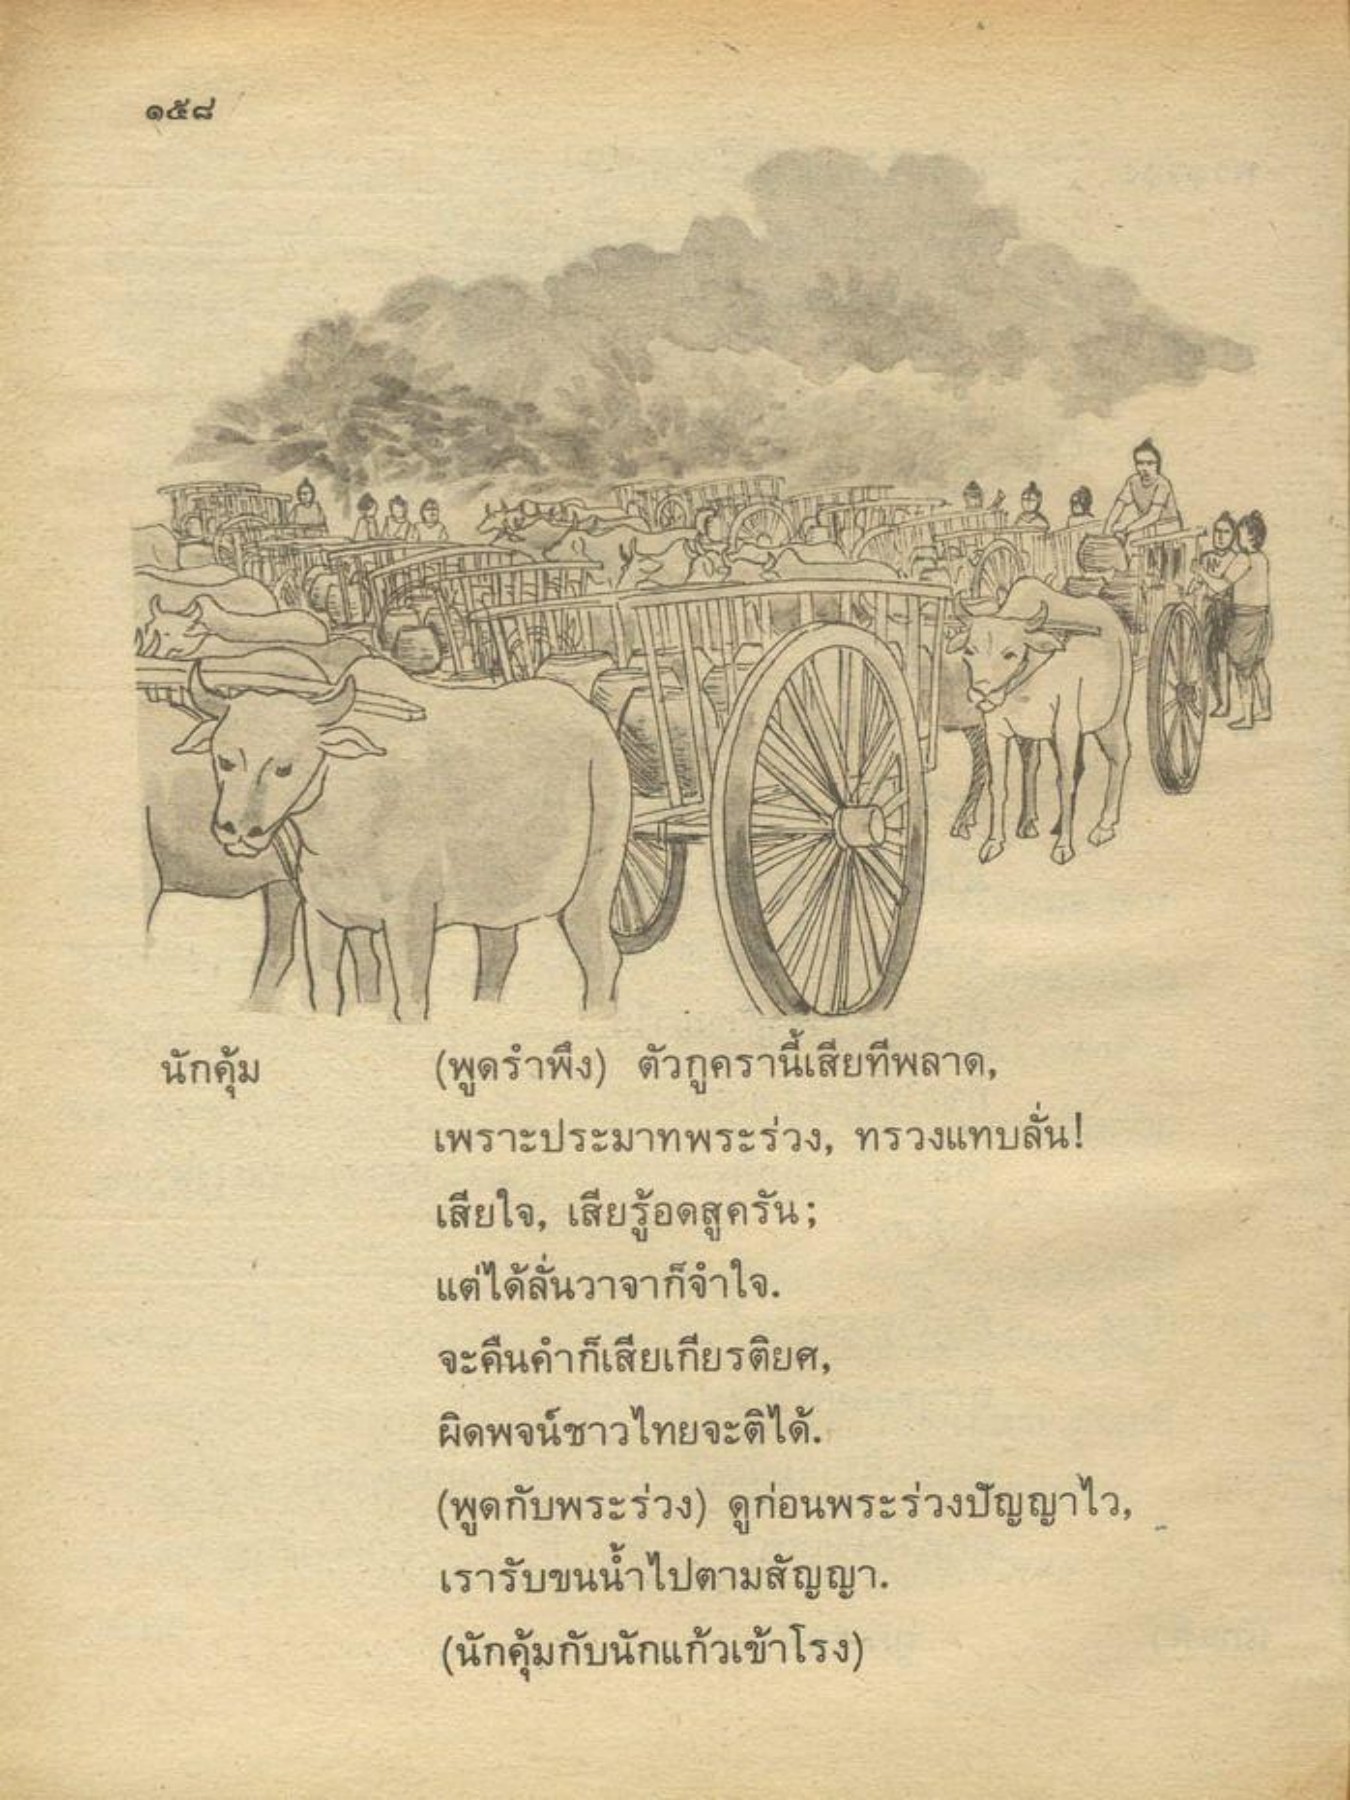 ๑๕๘
นักคุ้ม (พูดรำพึง) ตัวกูครานี้เสียทีพลาด,
เพราะประมาทพระร่วง, ทรวงแทบลั่น!
เสียใจ, เสียรู้อดสูครัน;
แต่ได้ลั่นวาจาก็จำใจ.
จะคืนคำก็เสียเกียรติยศ,
ผิดพจน์ชาวไทยจะติได้.
(พูดกับพระร่วง) ดูก่อนพระร่วงปัญญาไว,
เรารับขนน้ำไปตามสัญญา.
(นักคุ้มกับนักแก้วเข้าโรง)